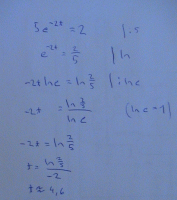 5e^-2t = 2 |:5
e^-2t = 2/5 | ln
-2t ln e = ln 2/5 |: ln e
-2t = (ln 2/5)/(ln e) (ln e = 1)
-2t = ln 2/5
t = (ln 2/5)/-2
t ≈ 4,6